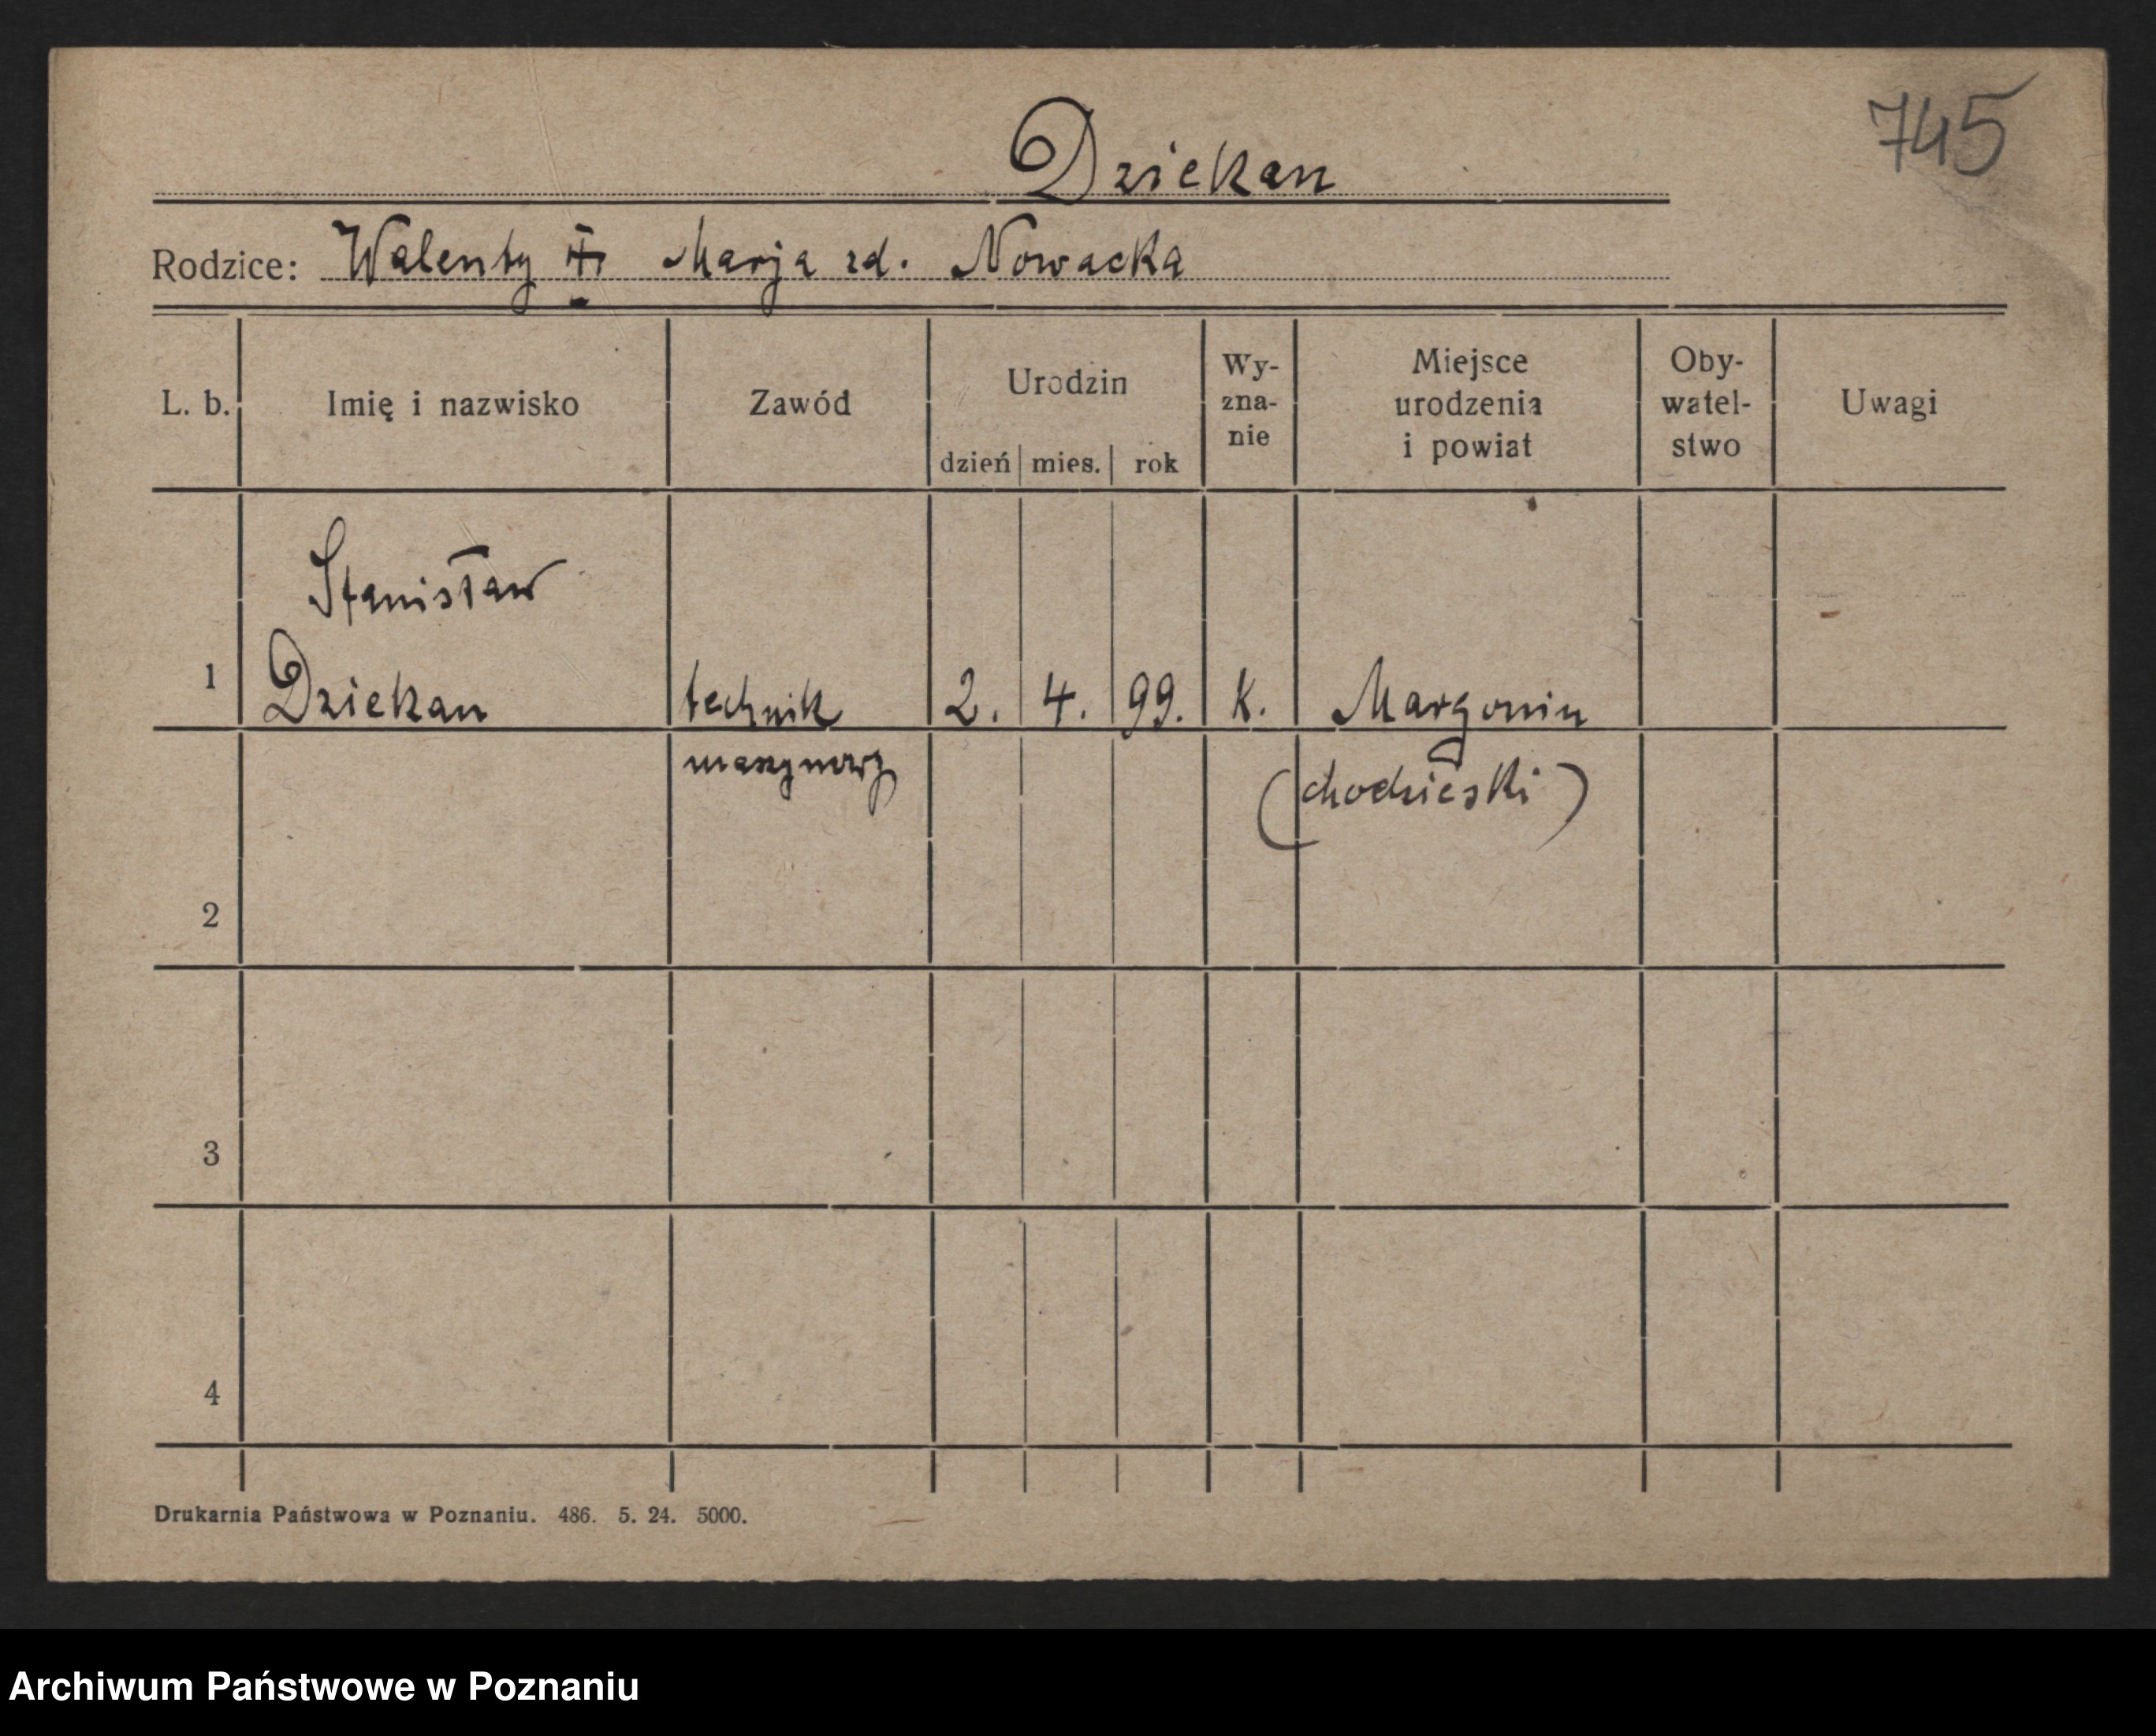 745
Dziekan
Rodzice: Walenty Marja zd. Nowacka
L. b. Imię i nazwisko Zawód Urodzin dzień mies. rok Wy-zna-nie Miejsce urodzenia i powiat Oby-watel-stwo Uwagi
Stanisław
1 Dziekan technik 2. 4. 99. k. Margonin
maszynowy (chodzieski)
2
3
4
Drukarnia Państwowa w Poznaniu. 486. 5. 24. 5000.
Archiwum Państwowe w Poznaniu